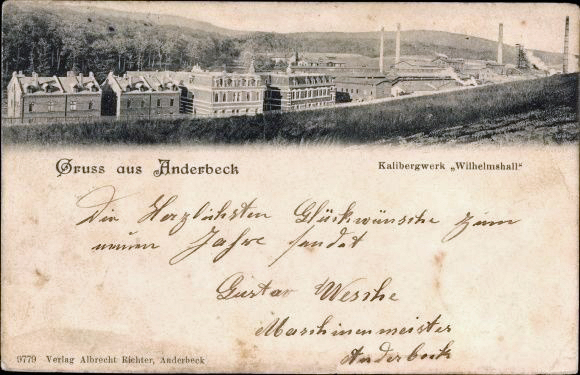 Gruss aus Anderbeck
Kalibergwerk „Wilhelmshall"
Die Herzlichsten Glückwünsche zum
neuen Jahre sendat
Gustav Wesche
Maschinenmeister
Anderbeck
9779 Verlag Albrecht Richter, Anderbeck